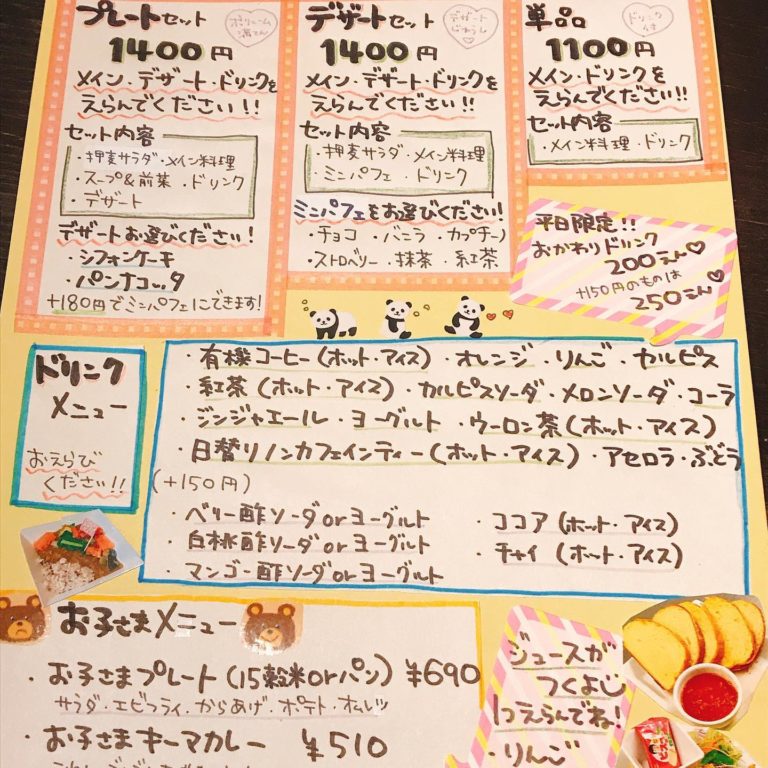 プレートセット
ボリューム
満てん
1400円
メイン・デザート・ドリンクを
えらんでください!!
セット内容
・押麦サラダ・メイン料理
・スープ&前菜・ドリンク
・デザート
デザートお選びください!
・シフォンケーキ
・パンナコッタ
+180円でミニパフェにできます!
デザートセット
デザート
1400円
メイン・デザート・ドリンクを
えらんでください!!
セット内容
・押麦サラダ・メイン料理
・ミニパフェ・ドリンク
ミニパフェをお選びください!
・チョコ・バニラ・カプチーノ
・ストロベリー・抹茶・紅茶
単品
ドリンク
付
1100円
メイン・ドリンクを
えらんでください!!
セット内容
・メイン料理・ドリンク
平日限定!!
おかわりドリンク
200えん♡
+150円のものは
250えん♡
ドリンク
メニュー
おえらび
ください!!
・有機コーヒー(ホット・アイス)・オレンジ・りんご・カルピス
・紅茶(ホット・アイス)・カルピスソーダ・メロンソーダ・コーラ
・ジンジャエール・ヨーグルト・ウーロン茶(ホット・アイス)
・日替りノンカフェインティー(ホット・アイス)・アセロラ・ぶどう
(+150円)
・ベリー酢ソーダorヨーグルト
・白桃酢ソーダorヨーグルト
・マンゴー酢ソーダorヨーグルト
・ココア(ホット・アイス)
・チャイ(ホット・アイス)
お子さまメニュー
・お子さまプレート(15穀米orパン)¥690
サラダ・エビフライ・からあげ・ポテト・オムレツ
・お子さまキーマカレー ¥510
ジュースが
つくよ
1つえらんでね!
・りんご